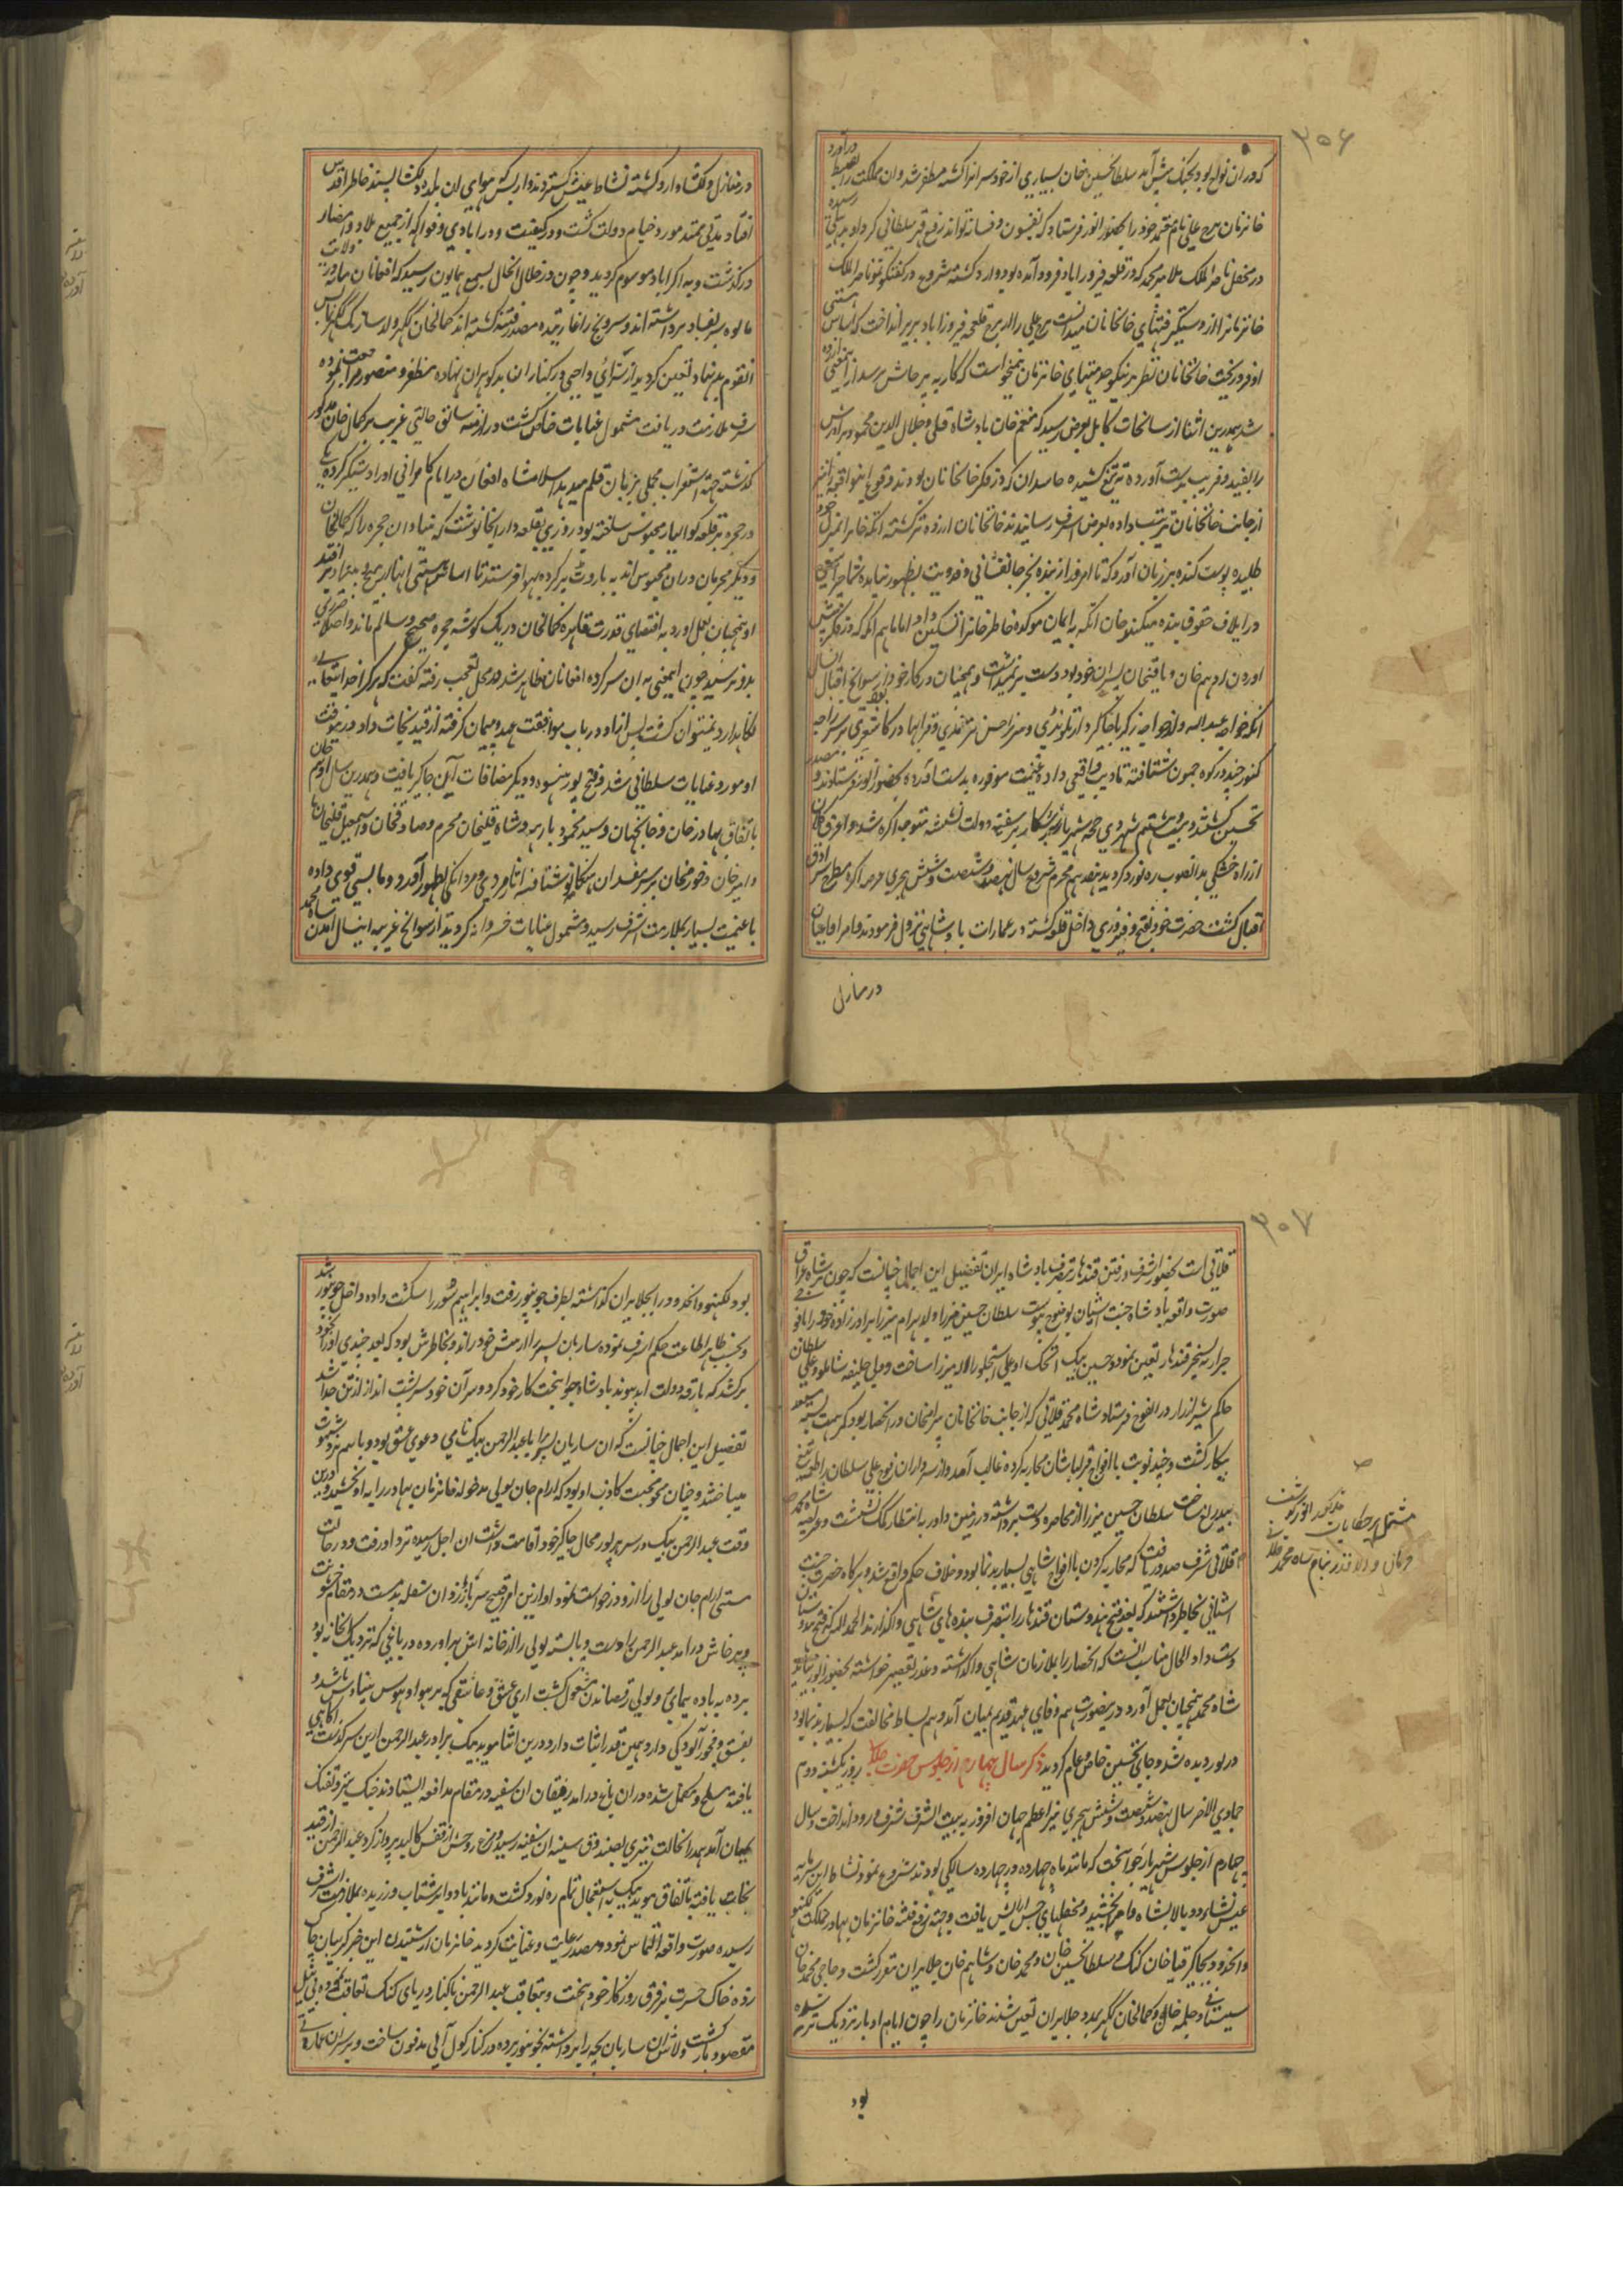 ۲۵۶
که در ان نواح بود بجنک پیش آمد سلطانحسین خان بسیاری از خودسرانرا کشته مظفر شد و ان مملکت را بضبط درآورد
خانزمان برج علی نام معتمد خود را بحضور انور فرستاد که بفسون و فسانه تواند رفع قهر سلطانی کرد او بدهلی رسیده
در محفل ناصر الملک ملا پیر محمد که در قلعه فیروزاباد فرود آمده بود وارد کشته شروع در کفتکو نمود ناصر الملک
خانزمانرا از دستگیر فتهای خانخانان میدانست برج علی را از برج قلعه فیروزاباد بزیر انداخت که اساس هستی
او فرو ریخت خانخانان نظر بر نیکو خدمتیهای خانزمان نمیخواست که کار به پرخاش رسد از اینمعنی ازرده
شد همدرین اثنا از سانحات کابل بعرض رسید که منعم خان پادشاه قلی و جلال الدین محمود و برادرش
را بقید و فریب بدست آورده تیغ کشیده حاسدان که در فکر خانخانان بودند وقوع اینواقعه را نیز
از جانب خانخانان ترتیب داده بعرض اشرف رسانیدند خانخانان ازرده تر کشته اتکه خانرا بمنزل خود
طلبیده پوست کنده بر زبان آورد که تا امروز از بنده بجز جانفشانی و فدویت بظهور نیامده شما چرا سعی
در اتلاف حقوق بنده میکنید خان اتکه به ایمان موکده خاطر خانرا تسکین داد اما ماهم انکه که در فکر پیش
اوردن ادهم خان و باقیخان پسران خود بود دست برنمیداشت و همچنان در کار خود بود از سوانح اقبال انسال
انکه خواجه عبدالله ولد خواجه زکریا جاکیردار تلوندی و میرزا حسن ترمذی و قرابهادر کاشغری بر سر راجه
کنور چند در کوه جمون شتافته تادیب واقعی داده غنیمت موفوره بدست آورده بحضور انور فرستادند و مصدر
تحسین کشتند و بیست هشتم شهر دی حجه شهریار بحر شکار بر سفینه دولت نشسته متوجه اکره شد و افواج کلان
از راه خشکی بدانصوب ره نورد کردید هفدهم محرم شروع سال نهصد و شصت و شش هجری عرصه اکره مطرح اشراق
اقبال کشت حضرت خود بفتح و فیروزی داخل قلعه کشته در عمارات بادشاهی نزول فرمودند و امرا و اعیان
در منازل
در منازل دلکشا وارد کشته نشاط عیش کستردند و از بسکه هوای ان بلده دلکشا پسند خاطر اقدس
افتاد مدتی ممتد مورد خیام دولت کشت و در کیفیت و در ابادی و فواکه از جمیع بلاد و امصار
درگذشت و به اکراباد موسوم کردید و چون در خلال انحال بسمع همایون رسید که افغانان میانه ولایت
مالوه سر بفساد برداشته اند و سرونج را غارتیده مصدر فتنه کشته اند کمالخان ککهر ولد سارنک ککهر بناس
انقوم بد نهاد تعیین کردید او سزای واجبی در کنار ان بدکوهران نهاده مظفر و منصور مراجعت نموده
شرف ملازمت دریافت مشمول عنایات خاص کشت در ازمنه سابق حالتی غریب بر کمال خان مذکور
کذشته جهت استغراب مجملی بزبان قلم میدهد اسلامشاه افغان در ایام کامرانی او را دستگیر کرده با
در حجره تر قلعه کوالیار محبوس ساخته بود روزی بقلعه دار انجا نوشت که بنیاد ان حجره را که کمالخان
و دیگر مجرمان در ان محبوس اند به باروت پر کرده بهوا فرستند تا اساس هستی اینها از بیخ و بنیاد بر افتد
او همچنان بعمل اورد به اقتضای قدرت قاهره کمالخان در یک کوشه حجره صحیح و سالم ماند و اصلا ضرری
بدو نرسید چون اینمعنی به ان سرکرده افغانان ظاهر شد در محل تعجب رفته کفت که هر کرا خدا ایتعالی
نکاهدارد نمیتوان کشت پس از او در باب موافقت عهد و پیمان کرفته از قید نجات داد و در نیوقت
او مورد عنایات سلطانی شد و فتح پور هنسوه و دیکر مضافات آن جاکیر یافت و همدرین سال ادهم خان
باتفاق بهادر خان و خانجهان و سید محمود بارهه و شاه قلیخان محرم و صادقخان و اسمعیل قلیخان با
و امیر خان و خورمخان بر سر مفسدان هتکانو شتافته اثار مردی و مردانکی بظهور آورد و مالسمی قوی داده
با غنیمت بسیار بملازمت اشرف رسید و مشمول عنایات خسروانه کردید از سوانح غریبه اینسال آمدن شاه محمد
۲۵۷
قلاتی است بحضور اشرف و رفتن قندهار بتصرف بادشاه ایران تفضیل این اجمال چنانست که چون بر شاه عراق
صورت واقعه بادشاه جنت اشیان بوضوح پیوست سلطان حسین میرزا ولد بهرام میرزا برادرزاده خود را با فوجی
جرار به تسخیر قندهار تعین نمود و حسین بیک ایچک اوغلی استجلو را لاله میرزا ساخت و ولی خلیفه شاملو و علی سلطان
حاکم شیراز را در الفوج فرستاد شاه محمد قلاتی که از جانب خانخانان بیرامخان در انحصار بود کمر همت بسته مستعد
پیکار کشت و چند نوبت با افواج قزلباشان محاربه کرده غالب آمد و از سرداران فوج علی سلطان را طعمه تیغ
بیدریغ ساخت سلطان حسین میرزا از محاصره دست برداشته در زمین داور به انتظار کمک نشست و عریضه شاه محمد
قلاتی شرف صدور یافت که محاربه کردن با افواج شاهی بسیار بدنما بود و خلاف حکم واقع شد و هرکاه حضرت جنت
اشیانی بخاطر داشتند که بعد فتح هندوستان قندهار را بتصرف بنده های شاهی واکذارند الحمد لله که فتح هندوستان
دست داد الحال مناسب انست که انحصار را بملازمان شاهی واکذاشته و عذر تقصیر خواسته بحضور انور بیاید
شاه محمد همچنان بعمل آورد در نصورت هم وفای عهد قدیم بمیان آمد و هم بساط مخالفت که بسیار بدنما بود
درنوردیده شد و جای تحسین خاص و عام کردید ذکر سال چهارم از جلوس حضرت جلال روز یکشنبه دوم
جمادی الاخر سال نهصد و شصت و شش هجری نیر اعظم جهان افروز به بیت الشرف شرف ورود انداخت و سال
چهارم از جلوس شهریار جوانبخت که مانند ماه چهارده در چهارده سالکی بودند شروع نمود نشاط این سرمایه
عیش نشاء دو بالا بشاه و امرا بخشید و محفلهای جشن ارایش یافت و جهته رفع فتنه خانزمان بهادر مملکت لکهنو
واتخرد و بجاکیر قیاخان کنک و سلطانحسین خان و محمد خان و شاهم خان جلایران مقرر کشت و حاجی محمد خان
سیستانی و چلمه خان و کمالخان ککهر بمدد جلایران تعین شدند خانزمان را چون ایام ادبار نزدیک تر رسیده
مشتمل بر خطابات
فرمان والا قدر بنام شاه محمد قلاتی
بود
بود لکهنو و اتخرد و را بجلایران کذاشته بطرف جونپور رفت و ابراهیم سور را شکست داده داخل جونپور شد
و بحسب ظاهر اطاعت حکم اشرف نموده ساربان پسر را از پیش خود راند و بخاطرش بود که بعد چندی او را بخود
برکشد که بارقه دولت ابد پیوند بادشاه جوانبخت کار خود کرد و سر آن خود سر نشیب انداز از تن جدا شد
تفضیل این اجمال چنانست که ان ساربان پسر با عبدالرحمن بیک نامی دعوی عشق بود و باهم نرد شهوت
میباختند و چنان محو محبت کاذب او بود که ارام جان لولی مدخوله خانزمان بهادر را به او بخشید و درین
وقت عبدالرحمن بیک در سرهرپور محال جاکیر خود اقامت داشت ان اجل رسیده نزد او رفت و در حالت
مستی ارام جان لولی را از و درخواست نمود او ازین امر قبیح سر باز زد ان سفله بدمست در مقام خشونت
و پرخاش درآمد عبدالرحمن را دست و پا بسته لولی را از خانه اش براورده در باغی که نزدیک خانه بود
برده به باده پیمایی و لولی رقصاندن مشغول کشت اری عشق و عاشقی که بر هوا و هوس بنیادش باشد و
بفسق و فجور آلودکی دارد همین قدر اثبات دارد درین اثنا موید بیک برادر عبدالرحمن ازین سرکذشت اکاهی
یافته مسلح و مکمل شده دران باغ درامد رفیقان ان سفیه در مقام مدافعه ایستادند جنک تیر و تفنک
بمیان آمد در انحالت تیری بصندوق سینه ان سفینه رسید و مرغ روحش از قفس کالبد پرواز کرد عبدالرحمن از قید
نجات یافته باتفاق موید بیک به استعجال تمام ره نورد کشت و مانند باد و ابر شتاب ورزیده بملازمت اشرف
رسیده صورت واقعه التماس نمود و مصدر رعایت و عنایت کردید خانزمان از شنیدن این خبر کریبان چاک
زده خاک حسرت بر فرق روزکار خود بیخت و بتعاقب عبدالرحمن تا کنار دریای کنک تعاقب نموده بی نیل
مقصود بازکشت و لاش ان ساربان بچه را برداشته بجونپور برده در کنار کول آبی مدفون ساخت و بر سران عمارتی